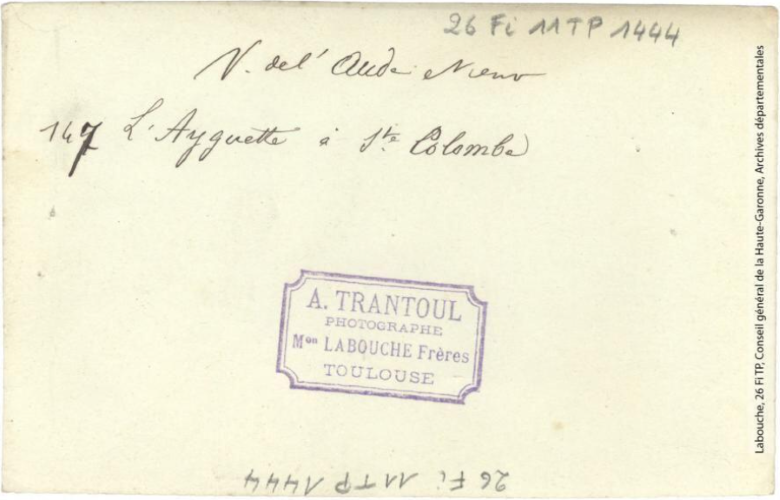 26 Fi 11TP 1444
V. de l' Aude
147 L'Ayguette à Ste Colombe
A. TRANTOUL
PHOTOGRAPHE
Mon LABOUCHE Frères
TOULOUSE
26 Fi 11TP 1444
Labouche, 26 FI TP, Conseil général de la Haute-Garonne, Archives départementales